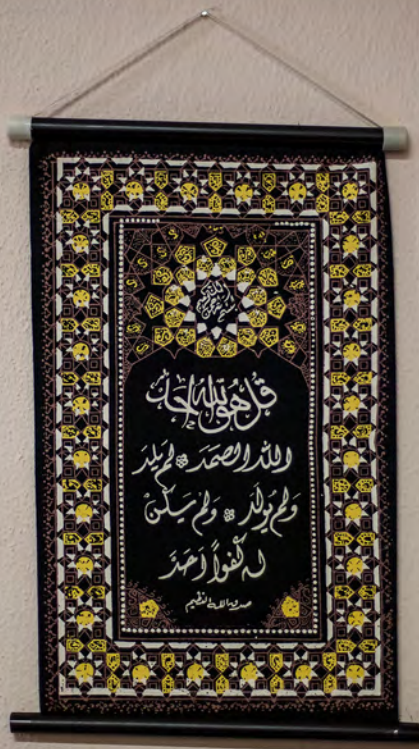 بسم الله الرحمن الرحيم
قُل هُوَ اللّٰه احَد
اللّٰه الصمَد ۞ لم يلِد
وَلم يُولَد ۞ وَلم يَكنْ
له كُفواً احَدَ
صدق الله العظيم